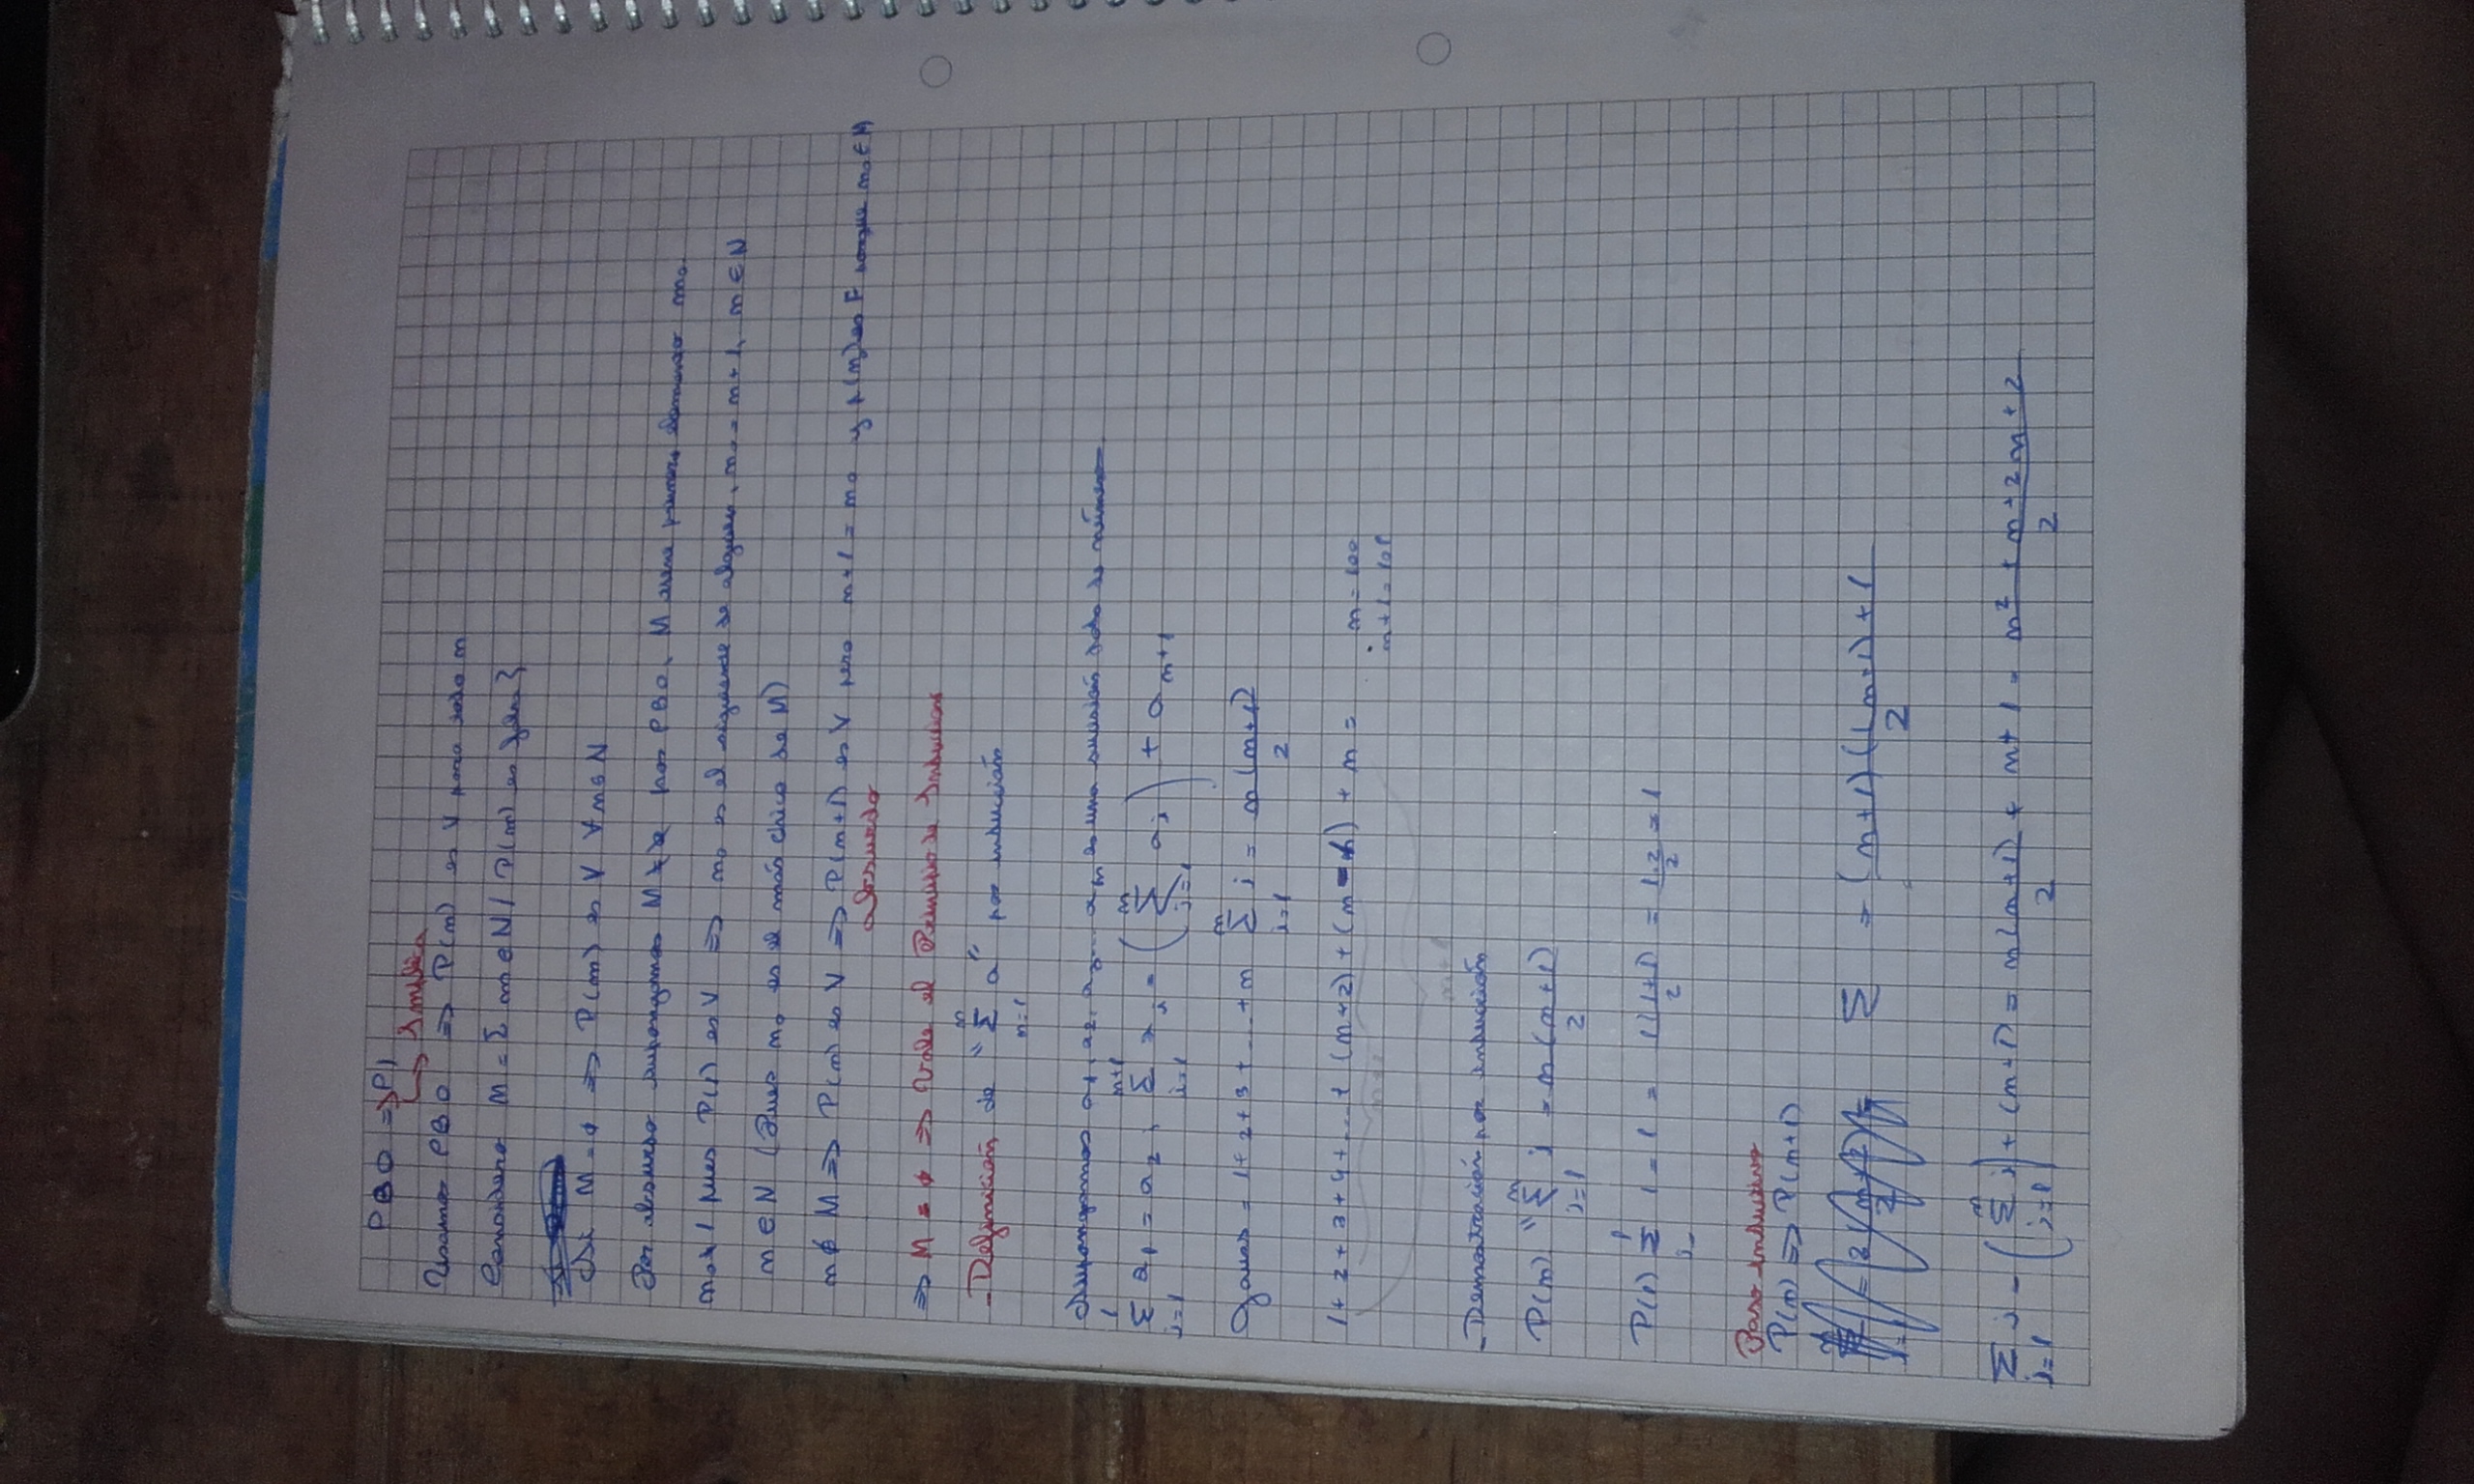 PBO => PI
↳ Implica
Usamos PBO => P(n) es V para todo n
Considero M = { m e N / P(m) es falsa }
Si M = ∅ => P(m) es V ∀ m e N
Por absurdo supongamos M ≠ ∅ por PBO, M tiene primer elemento m₀.
m₀ ≠ 1 pues P(1) es V => m₀ es el siguiente de alguien, m₀ = n + 1, n ∈ N
n ∈ N (Pues m₀ es el más chico de M)
n ∉ M => P(n) es V => P(n+1) es V pero n+1 = m₀ y P(m₀) es F porque m₀ ∈ M
Absurdo
=> M = ∅ => Vale el Principio de Induccion
- Definición de " ∑_{n=1}^{n} a " por inducción
Supongamos a₁, a₂, a₃... aₙ es una sucesión de números
∑_{i=1}^{1} a₁ = a₂, ∑_{i=1}^{n+1} aᵢ = ( ∑_{i=1}^{n} aᵢ ) + a_{n+1}
Gauss = 1+2+3+...+n ∑_{i=1}^{n} i = n(n+1)/2
1+2+3+4+...+(n-2)+(n-1)+n = n = 100
n+1 = 101
n+1
- Demostración por inducción
P(n) " ∑_{i=1}^{n} i = n(n+1)/2
P(1) ∑_{i}^{1} 1 = 1 = 1(1+1)/2 = 1.2/2 = 1
Paso inductivo
P(n) => P(n+1)
∑ = (n+1)((n+1)+1/2
∑_{i=1} i = ( ∑_{i=1}^{n} i ) + (n+1) = n(n+1)/2 + n+1 = n²+n+2n+2/2